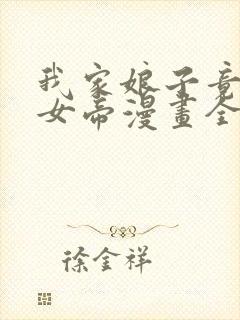 我家娘子竟
女帝漫畫全
徐金祥